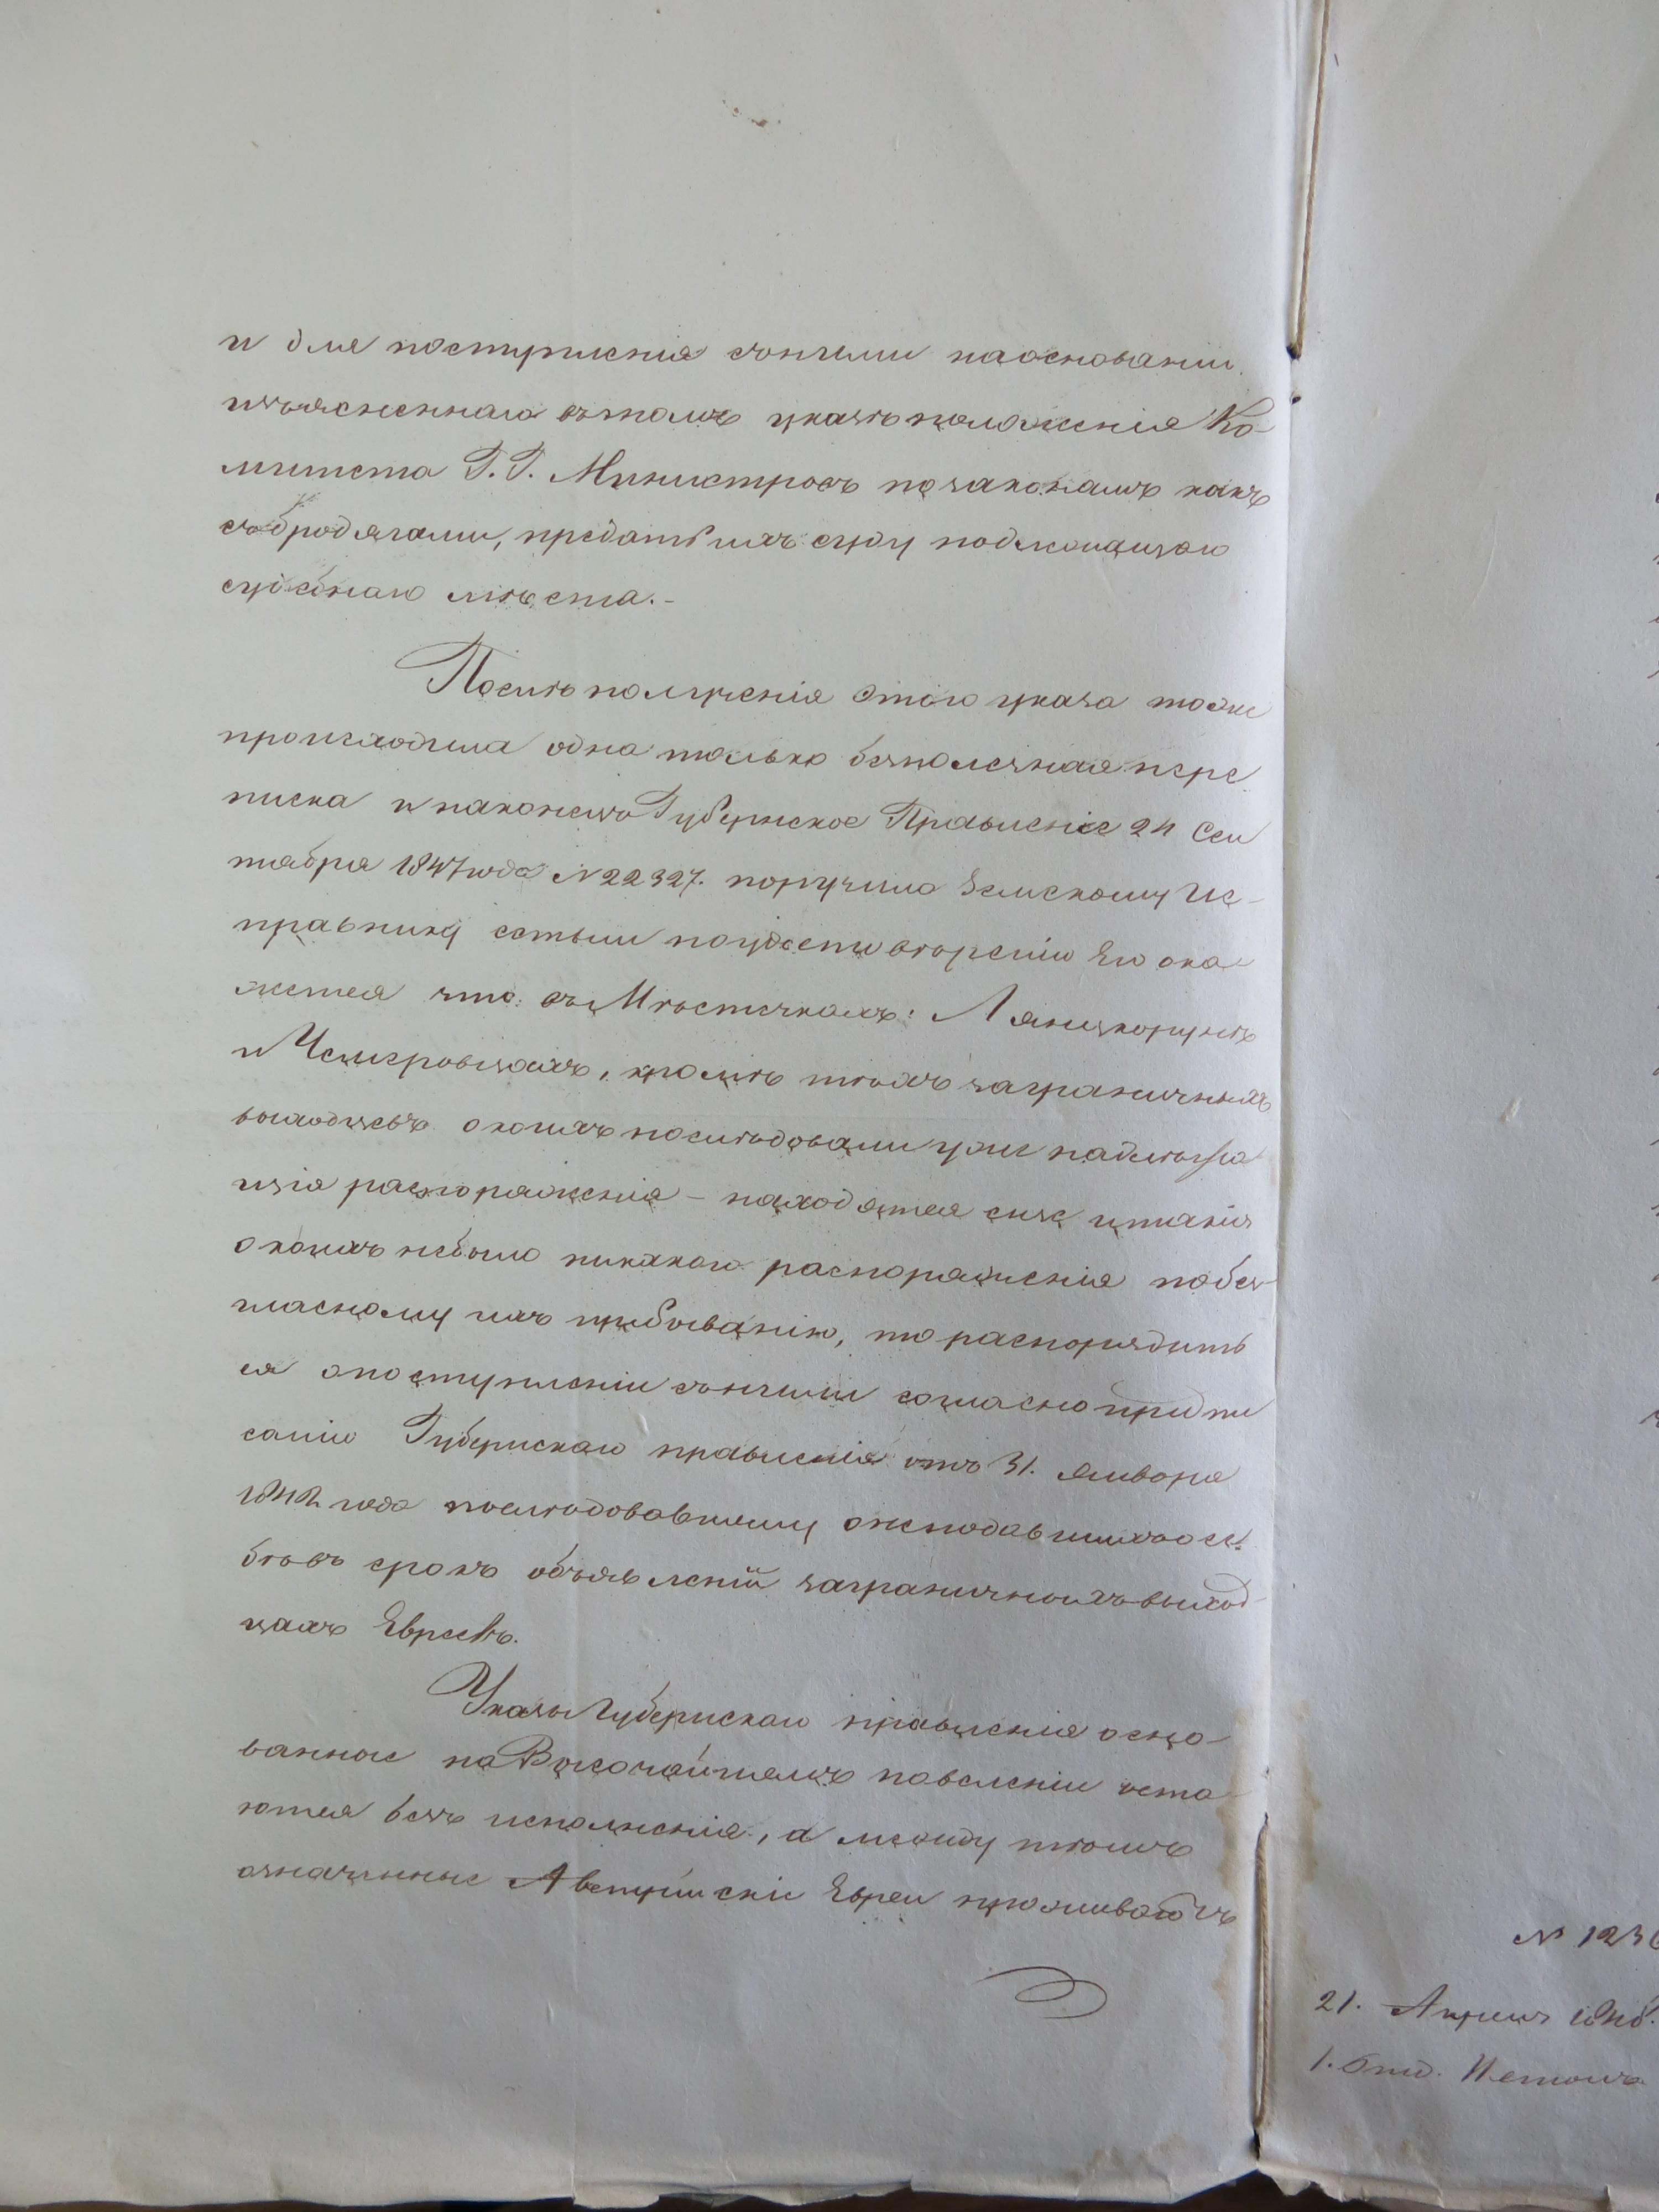 и для поступленія съ ними на основаніи
изъясненнаго въ томъ указѣ положенія Ко-
митета Г.Г. Министровъ по законамъ какъ
съ бродягами, предать ихъ суду подлежащаго
судебнаго мѣста.-
Послѣ полученія этого указа тоже
происходила одна только безполезная пере
писка и наконецъ Губернское Правленіе 24 Сен
тября 1847 года N 22327. поручило Земскому Ис-
правнику естьли по удостовѣренію Его ока
жется что въ Мѣстечкахъ: Лянцкорунѣ
и Чемеровцахъ, кромѣ тѣхъ заграничныхъ
выходцевъ о коихъ послѣдовали уже надлежа
щія распоряженія - находятся еще и такія
о коихъ небыло никакого распоряженія по без-
гласному ихъ пребыванію, то распорядить
ся о поступленіи съ ними согласно предпи
санію Губернскаго правленія отъ 31. января
1842 года послѣдовавшему о неподавшихъ о се-
бѣ въ срокъ объявленій заграничныхъ выход-
цахъ Евреевъ.
Указы Губернскаго правленія осно-
ванные на Высочайшемъ повеленіи оста-
ются безъ исполненія, а между тѣмъ
означенные Австрійскіе Евреи проживаютъ
21. Апреля